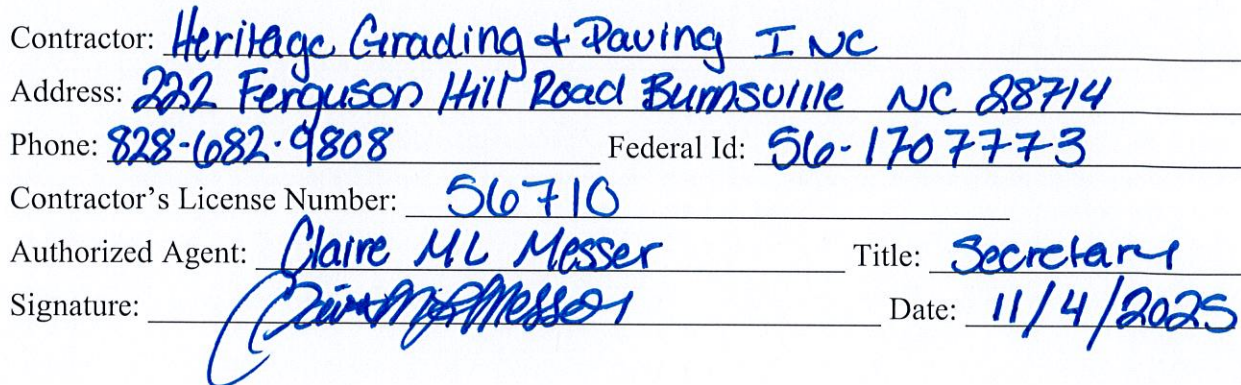 Contractor: Heritage Grading & Paving INC
Address: 222 Ferguson Hill Road Burnsville NC 28714
Phone: 828-682-9808 Federal Id: 56-1707773
Contractor's License Number: 56710
Authorized Agent: Claire ML Messer Title: Secretary
Signature: Claire ML Messer Date: 11/4/2025